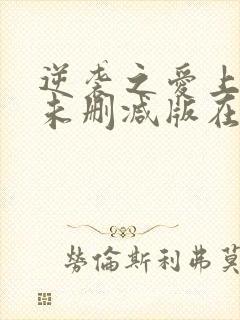 逆袭之爱上
未删减版在
劳倫斯利弗莫